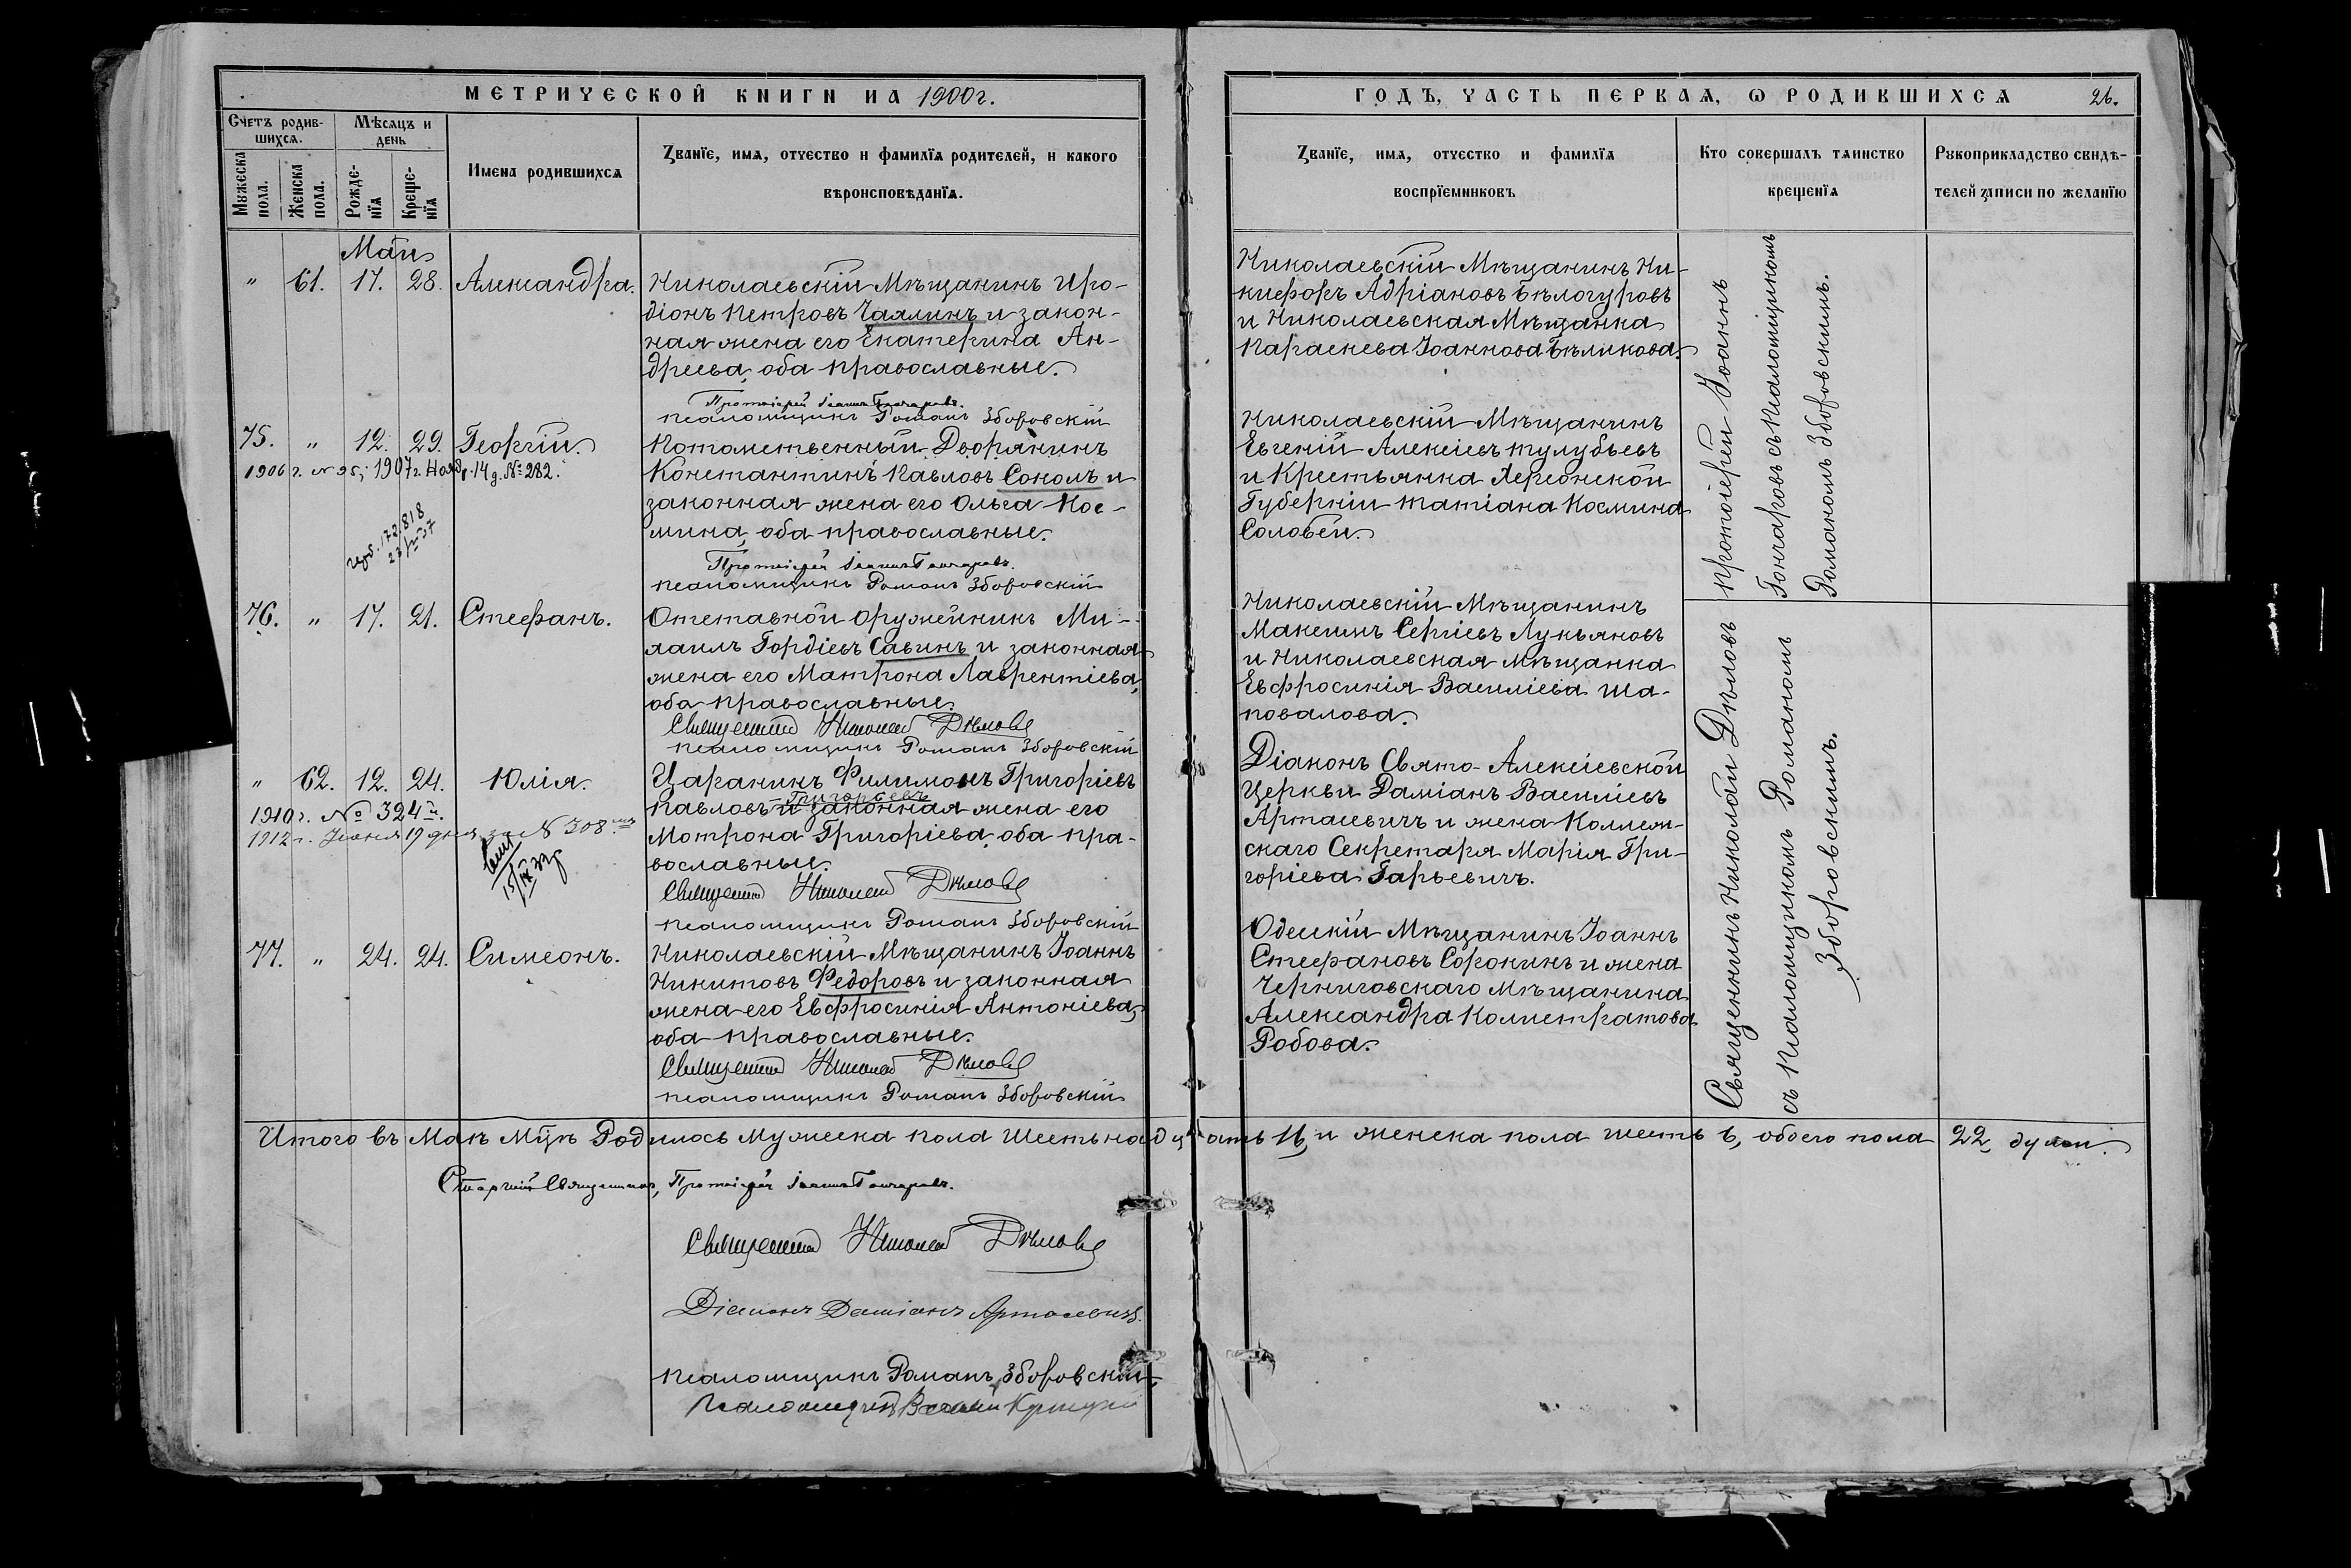 МЕТРИЧЕСКОЙ КНИГИ НА 1900 г.
Счетъ родив-
шихся.
Мѣсяцъ и
день
Мужеска
пола.
Женска
пола.
Рожде-
нія
Креще-
нія
Имена родившихся
Званіе, имя, отчество и фамилія родителей, и какого
вѣроисповѣданія.
Май
" 61. 17. 28. Александра.
Николаевскій Мѣщанинъ Иро-
діонъ Петровъ Чаялинъ и закон-
ная жена его Екатерина Ан-
дреева, оба православные.
Протоіерей Іоаннъ Гончаровъ.
Псаломщикъ Романъ Зборовскій
75. " 12. 29. Георгій.
1906 г. № 95; 1907 г. Нояб. 14 д. № 282.
Потомственный Дворянинъ
Константинъ Павловъ Соколъ и
законная жена его Ольга Кос-
мина, оба православные.
172818
Протоіерей Іоаннъ Гончаровъ.
Псаломщикъ Романъ Зборовскій
76. " 17. 21. Стефанъ.
Отставной оружейникъ Ми-
хаилъ Гордіевъ Савинъ и законная
жена его Матрона Лаврентіева,
оба православные.
Священникъ Николай Дѣловъ
Псаломщикъ Романъ Зборовскій
" 62. 12. 24. Юлія.
1910 г. № 324й.
1912 г. Іюня 19 дня за № 308
Царанинъ Филимонъ Григоріевъ
Григорьевъ
Павловъ и законная жена его
Мотрона Григоріева, оба пра-
вославные.
Священникъ Николай Дѣловъ
Псаломщикъ Романъ Зборовскій
77. " 24. 24. Симеонъ.
Николаевскій Мѣщанинъ Іоаннъ
Никитовъ Федоровъ и законная
жена его Евфросинія Антоніева,
оба православные.
Священникъ Николай Дѣловъ
Псаломщикъ Романъ Зборовскій
ГОДЪ, ЧАСТЬ ПЕРВАЯ, Ѡ РОДИВШИХСЯ 26.
Званіе, имя, отчество и фамилія
воспріемниковъ
Кто совершалъ таинство
крещенія
Рукоприкладство свидѣ-
телей записи по желанію
Николаевскій Мѣщанинъ Ни-
кифоръ Адріановъ Бѣлогуровъ
и Николаевская Мѣщанка
Параскева Іоаннова Бѣликова.
Николаевскій Мѣщанинъ
Евгеній Алексіевъ Тулубьевъ
и Крестьянка Херсонской
Губерніи Татіана Космина
Соловей.
Николаевскій Мѣщанинъ
Максимъ Сергіевъ Лукьяновъ
и Николаевская Мѣщанка
Евфросинія Василіева Ша-
повалова.
Діаконъ Свято-Алексіевской
Церкви Даміанъ Василіевъ
Артасевичъ и жена Коллеж-
скаго Секретаря Марія Гри-
горіева Гарьевичъ.
Одесскій Мѣщанинъ Іоаннъ
Стефановъ Сорокинъ и жена
Черниговскаго Мѣщанина
Александра Каллистратова
Робова.
Протоіерей Іоаннъ
Гончаровъ съ Псаломщикомъ
Романомъ Зборовскимъ.
Священникъ Николай Дѣловъ
съ Псаломщикомъ Романомъ
Зборовскимъ.
Итого въ Маѣ Мцѣ Родилось Мужеска пола Шестьнадцать 16, и женска пола шесть 6, обоего пола 22 души.
Старшій Священникъ, Протоіерей Іоаннъ Гончаровъ.
Священникъ Николай Дѣловъ
Діаконъ Даміанъ Артасевичъ.
Псаломщикъ Романъ Зборовскій
Псаломщикъ